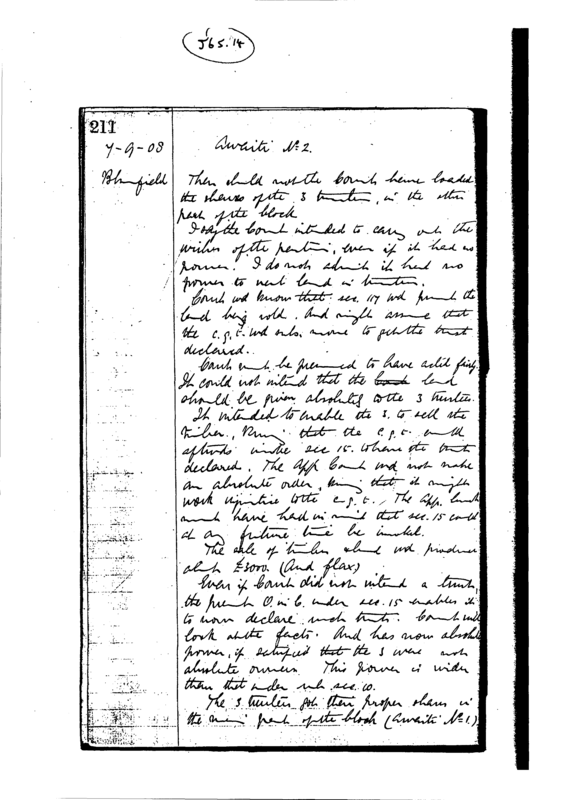 J65.14
211
7-9-08
Awaiti No 2.
Blomfield
Then should not the Court have loaded
the shares of the 3 trustees, in the other
part of the block
I say the Court intended to carry out the
wishes of the parties, even if it had no
power. I do not admit it had no
power to vest land in trustees.
Court wd know that sec. 117 wd prevent the
land being sold. And might assume that
the c.g.t. wd subs. move to get the trust
declared.
Court must be presumed to have acted fairly.
It could not intend that the land
should be given absolutely to the 3 trustees.
It intended to enable the 3 to sell the
timber, that the c.g.t. could
aftwds invoke sec 15. to have the trusts
declared. The App Court wd not make
an absolute order, that it might
work injustice to the c.g.t. The App. Court
must have had in mind that sec. 15 could
at any future time be invoked.
The sale of timber alone wd produce
about £3000. (And flax)
Even if Court did not intend a trust,
the present O. in C. under sec. 15 enables it
to now declare such trusts. Court will
look at the facts. And has now absolute
power, if satisfied that the 3 were not
absolute owners. This power is wider
than that under sec. 10.
The 3 trustees got their proper shares in
the main part of the block (Awaiti No 1.)